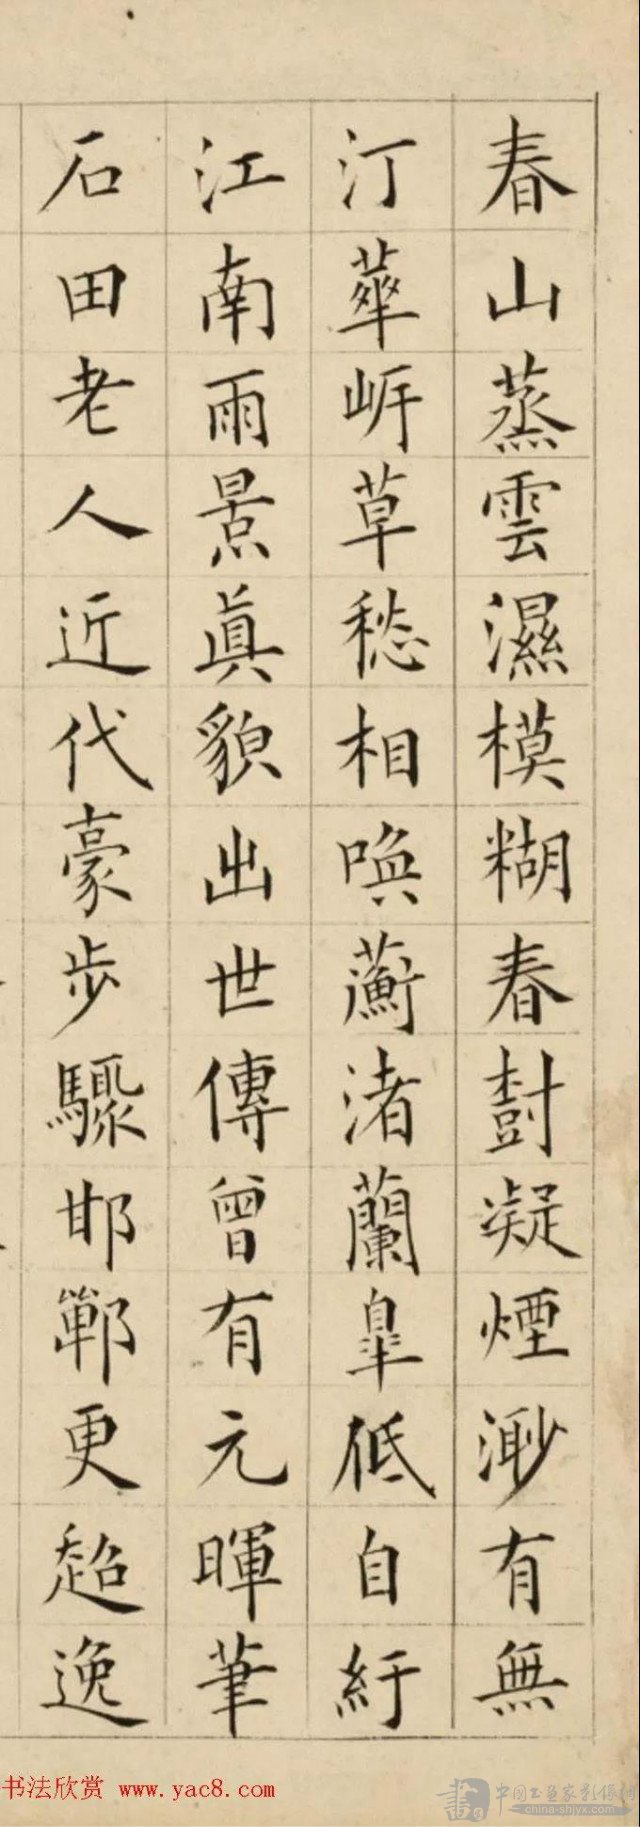 春山蒸雲濕模糊春封凝煙渺有無
汀華岸草愁相喚蘅渚蘭皐低自紆
江南雨景真貌出世傳曾有元暉筆
石田老人近代豪步驟邯鄲更超逸
书法欣赏 www.yac8.com
中国书画家影像网
china-shjyx.com